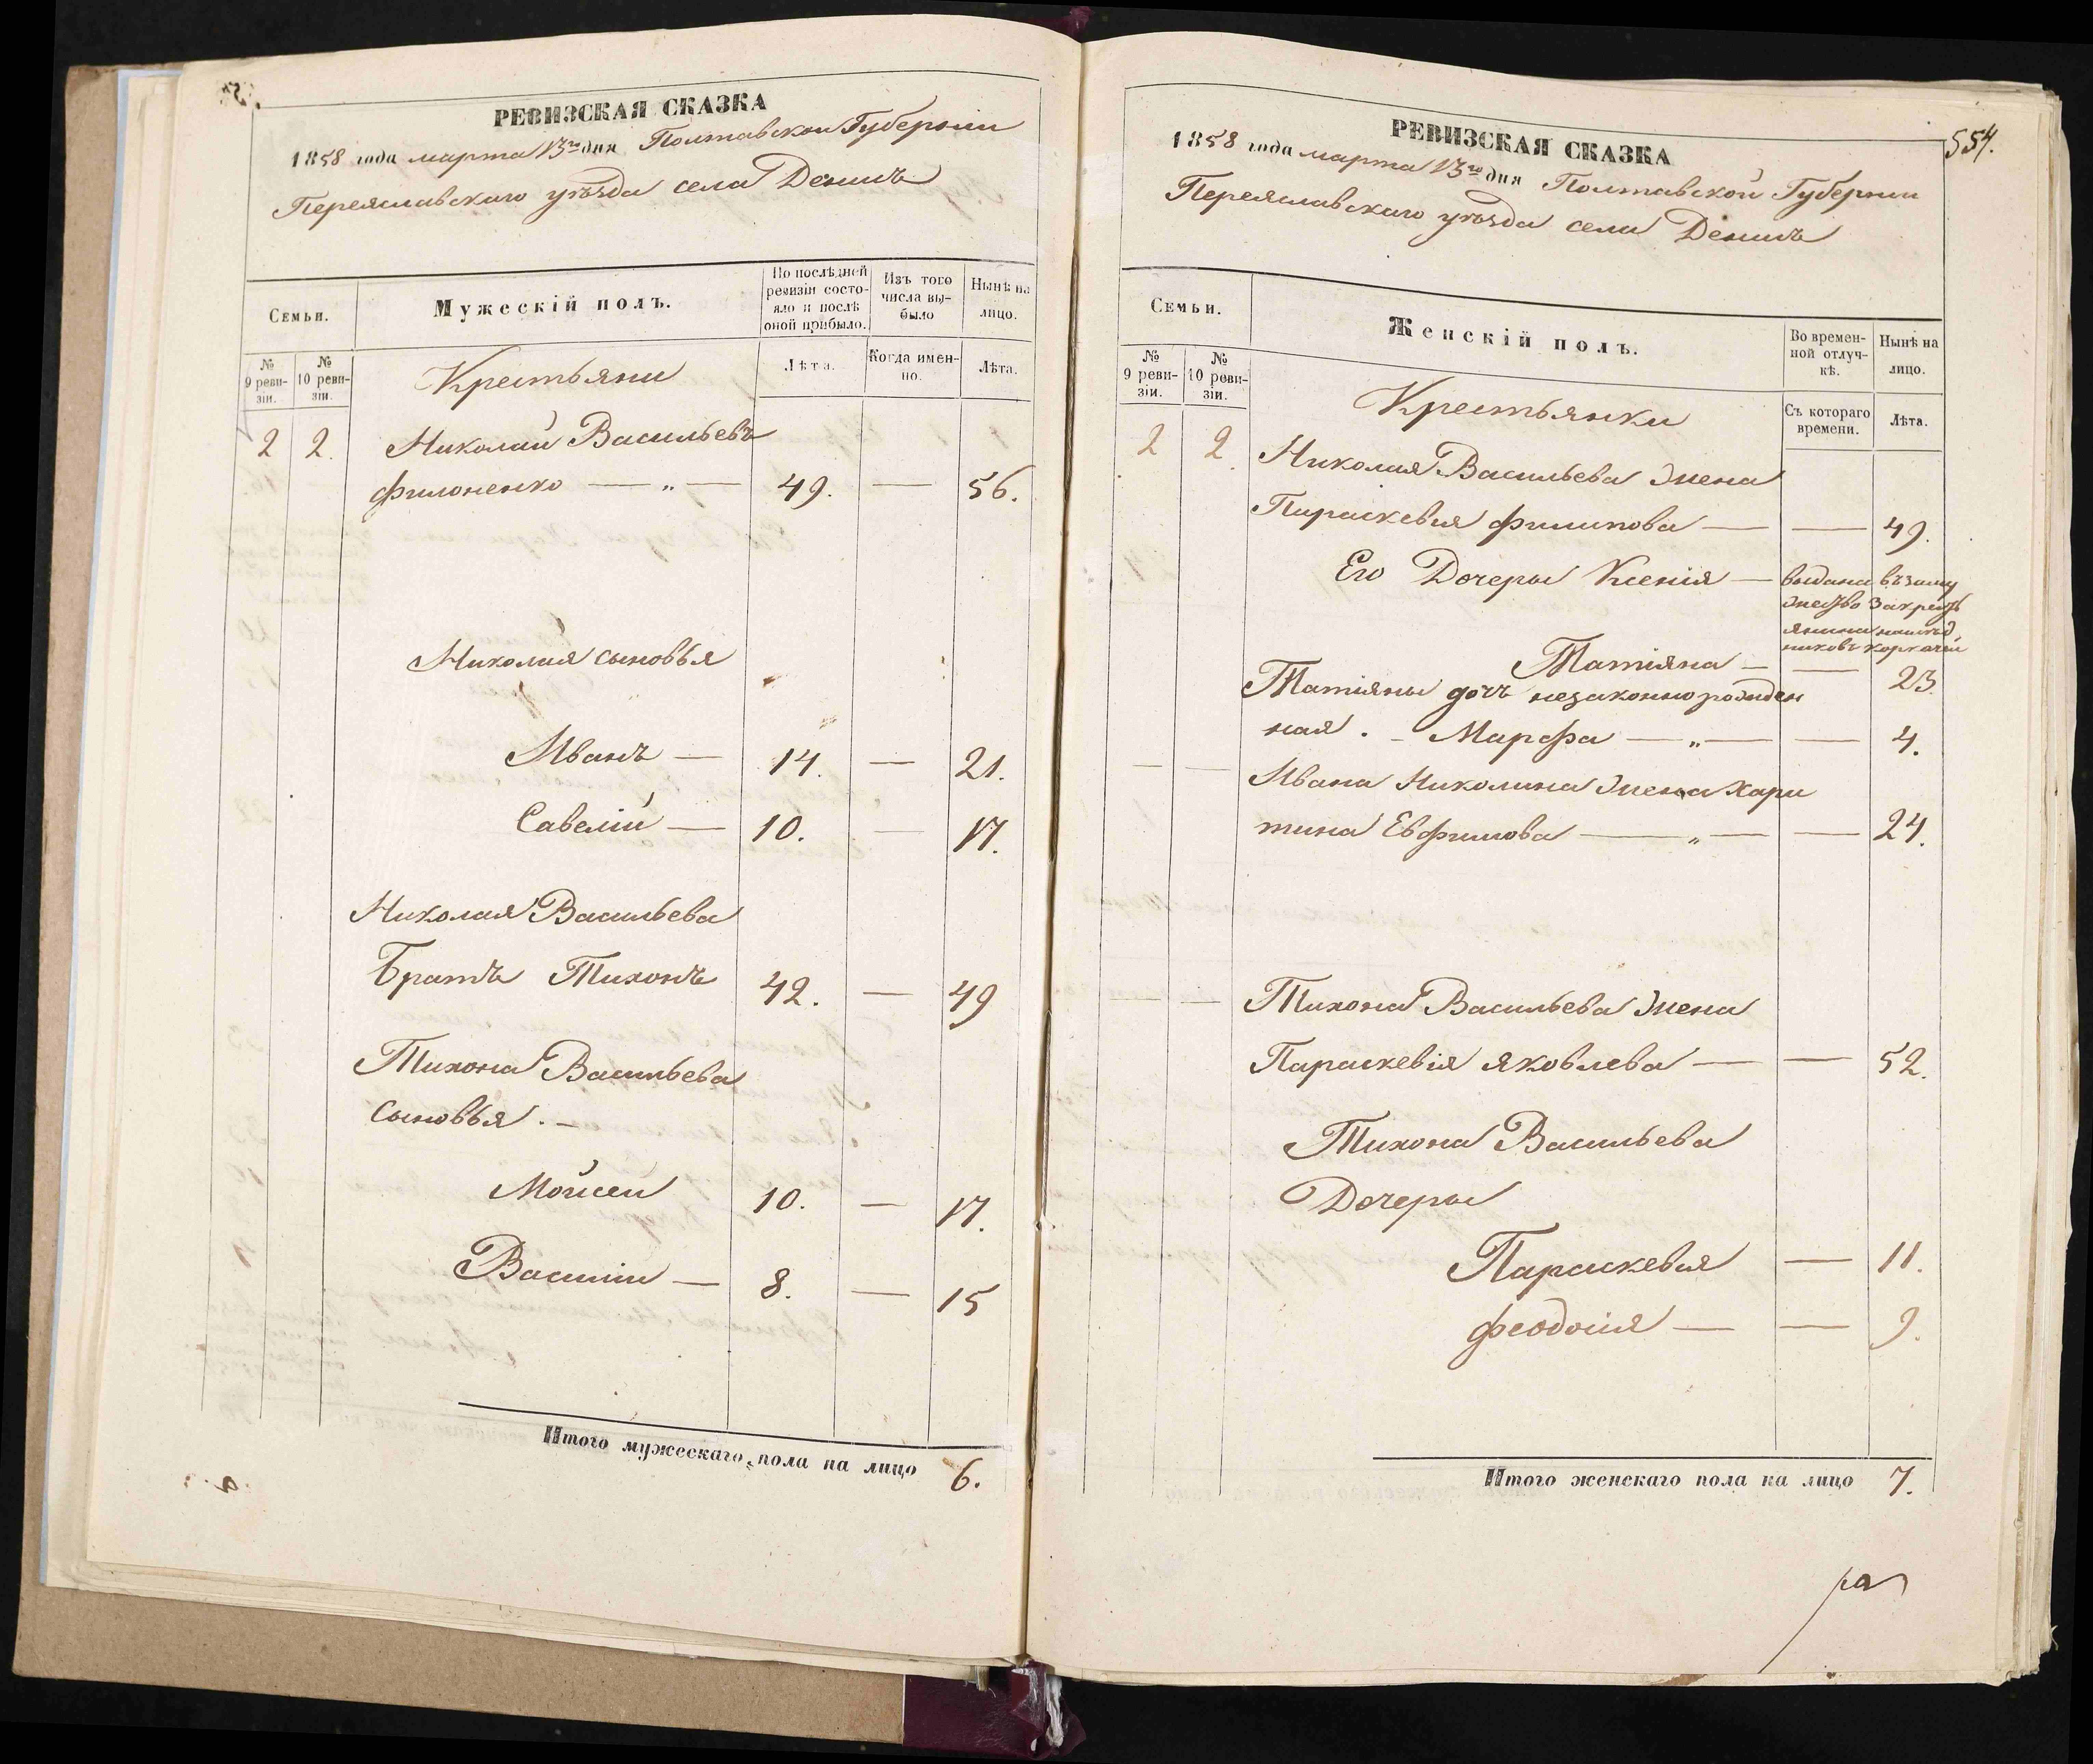 РЕВИЗСКАЯ СКАЗКА
1858 года марта 13го дня Полтавской Губернии
Переяславскаго уѣзда села Дениъ
Семьи.
Мужескій полъ.
По послѣдней ревизіи состо-
яло и послѣ оной прибыло.
Изъ того числа вы-
было
Нынѣ на лицо.
№ 9 реви-
зіи.
№ 10 реви-
зіи.
Крестьяни
Лѣта.
Когда имен-
но.
Лѣта.
2 2. Николай Васильевъ
филоненко — „ — 49. — 56.
Николая сыновья
Иванъ — 14. — 21.
Савелій — 10. — 17.
Николая Васильева
Братъ Тихонъ 42. — 49
Тихона Васильева
Сыновья . —
Мойсей 10. — 17.
Василій — 8. — 15
Итого мужескаго пола на лицо 6.
554.
РЕВИЗСКАЯ СКАЗКА
1858 года марта 13го дня Полтавской Губернии
Переяславскаго уѣзда села Дениъ
Семьи.
Женскій полъ.
Во времен-
ной отлуч-
кѣ.
Нынѣ на лицо.
№ 9 реви-
зіи.
№ 10 реви-
зіи.
Крестьянки
Съ котораго времени.
Лѣта.
2 2. Николая Васильева жена
Параскевия филипова — — 49.
Его Дочеры Ксенія — выдана въ заму
жество за крест
янина наслѣд
никовъ Коркачей
Татіяна — — 23.
Татіяны дочъ незаконнорожден
ная . — Марфа — „ — — 4.
— — Ивана Николина жена Хари
тина Евфимова — „ — — 24.
— — Тихона Васильева жена
Параскевія Яковлева — — 52.
Тихона Васильева
Дочеры
Параскевия — 11.
феодосия — — 9.
Итого женскаго пола на лицо 7.